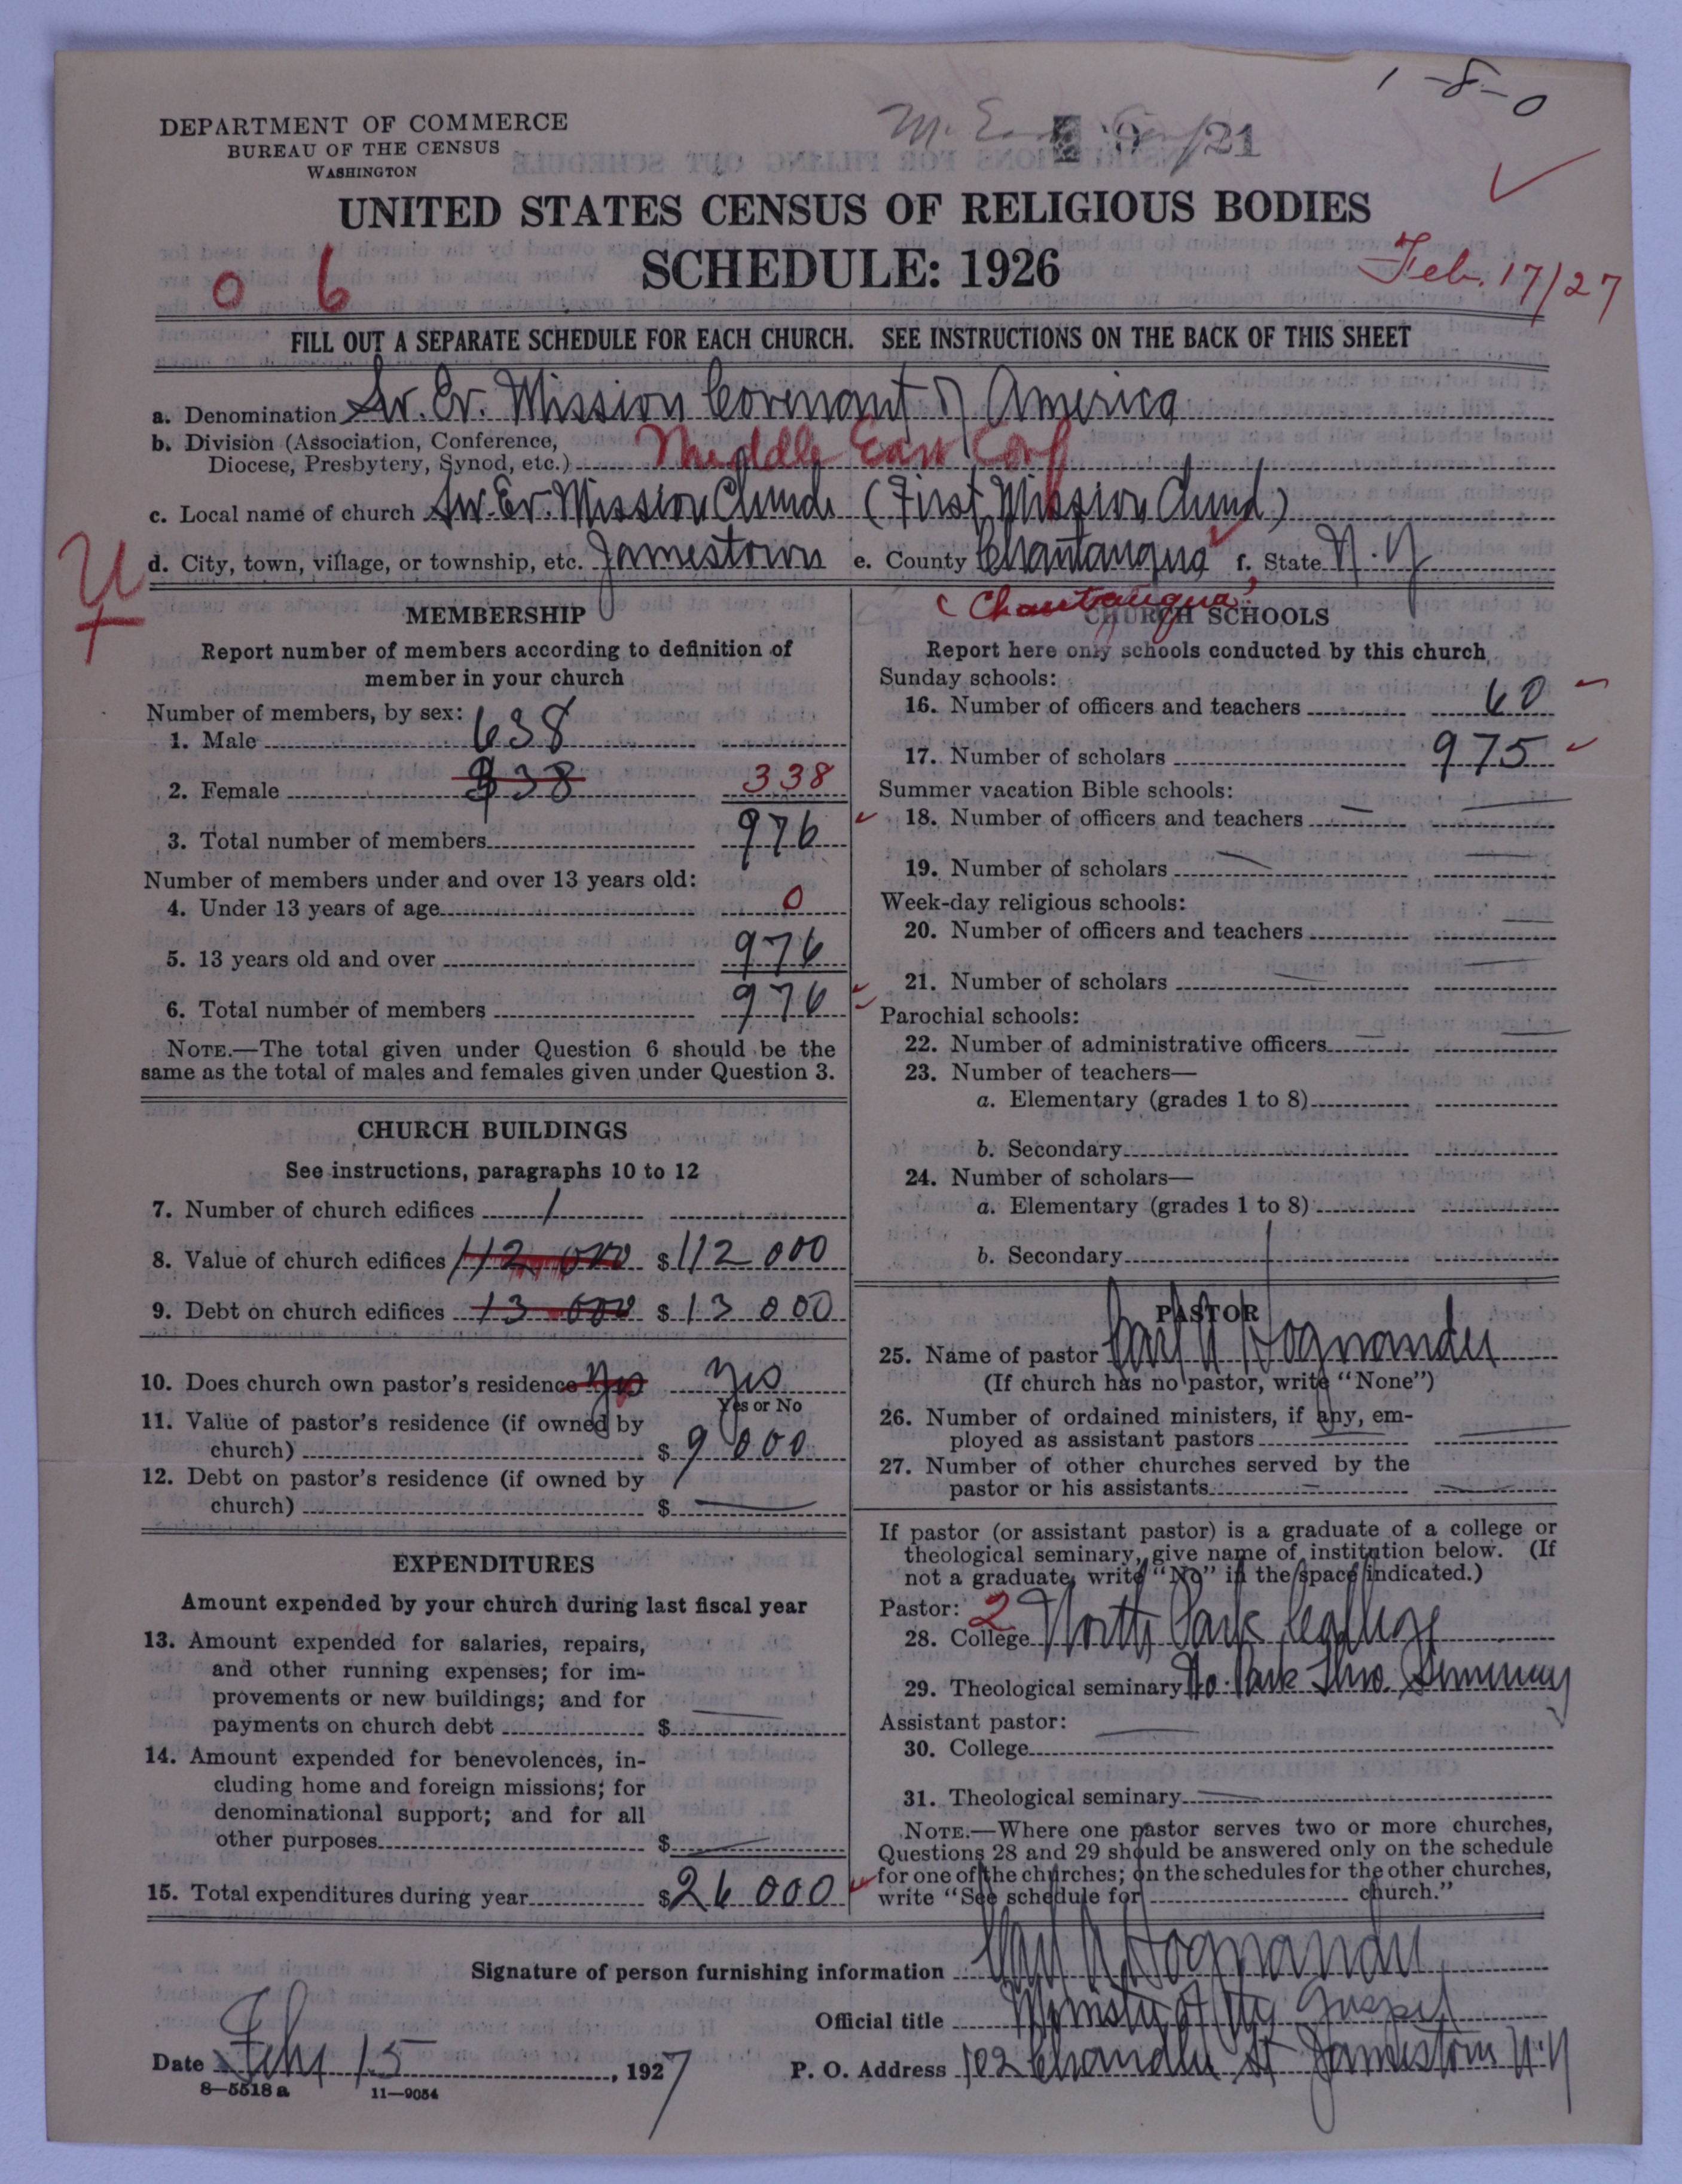 1-8-0
DEPARTMENT OF COMMERCE
BUREAU OF THE CENSUS
WASHINGTON
21
UNITED STATES CENSUS OF RELIGIOUS BODIES
SCHEDULE: 1926
Feb. 17/27
0 6
FILL OUT A SEPARATE SCHEDULE FOR EACH CHURCH. SEE INSTRUCTIONS ON THE BACK OF THIS SHEET
a. Denomination Sw. Ev. Mission Covenant of America
b. Division (Association, Conference,
Diocese, Presbytery, Synod, etc.) Middle East Conf
c. Local name of church Sw. Ev. Mission Church (First Mission Church)
d. City, town, village, or township, etc. Jamestown e. County Chautauqua f. State N.Y
U
(Chautauqua)
MEMBERSHIP
Report number of members according to definition of
member in your church
Number of members, by sex:
1. Male 638
2. Female 338 338
3. Total number of members 976
Number of members under and over 13 years old:
4. Under 13 years of age 0
5. 13 years old and over 976
6. Total number of members 976
NOTE.—The total given under Question 6 should be the
same as the total of males and females given under Question 3.
CHURCH BUILDINGS
See instructions, paragraphs 10 to 12
7. Number of church edifices 1
8. Value of church edifices 112 000 $ 112 000
9. Debt on church edifices 13 000 $ 13 000
10. Does church own pastor's residence Yes Yes
Yes or No
11. Value of pastor's residence (if owned by
church) $ 9 000
12. Debt on pastor's residence (if owned by
church) $ —
EXPENDITURES
Amount expended by your church during last fiscal year
13. Amount expended for salaries, repairs,
and other running expenses; for im-
provements or new buildings; and for
payments on church debt $ —
14. Amount expended for benevolences, in-
cluding home and foreign missions; for
denominational support; and for all
other purposes $ —
15. Total expenditures during year $ 26 000
CHURCH SCHOOLS
Report here only schools conducted by this church
Sunday schools:
16. Number of officers and teachers 60
17. Number of scholars 975
Summer vacation Bible schools:
18. Number of officers and teachers —
19. Number of scholars —
Week-day religious schools:
20. Number of officers and teachers —
21. Number of scholars —
Parochial schools:
22. Number of administrative officers —
23. Number of teachers—
a. Elementary (grades 1 to 8)
b. Secondary
24. Number of scholars—
a. Elementary (grades 1 to 8)
b. Secondary
PASTOR
25. Name of pastor Carl V Bognander
(If church has no pastor, write "None")
26. Number of ordained ministers, if any, em-
ployed as assistant pastors —
27. Number of other churches served by the
pastor or his assistants —
If pastor (or assistant pastor) is a graduate of a college or
theological seminary, give name of institution below. (If
not a graduate, write "No" in the space indicated.)
Pastor: 2
28. College North Park College
29. Theological seminary No. Park Theo. Seminary
Assistant pastor: —
30. College
31. Theological seminary —
NOTE.—Where one pastor serves two or more churches,
Questions 28 and 29 should be answered only on the schedule
for one of the churches; on the schedules for the other churches,
write "See schedule for church."
Signature of person furnishing information Carl V Bognander
Official title Minister of the Gospel
Date Feb 15, 1927 P. O. Address 102 Chandler St Jamestown N.Y
8—5518 a 11—9054